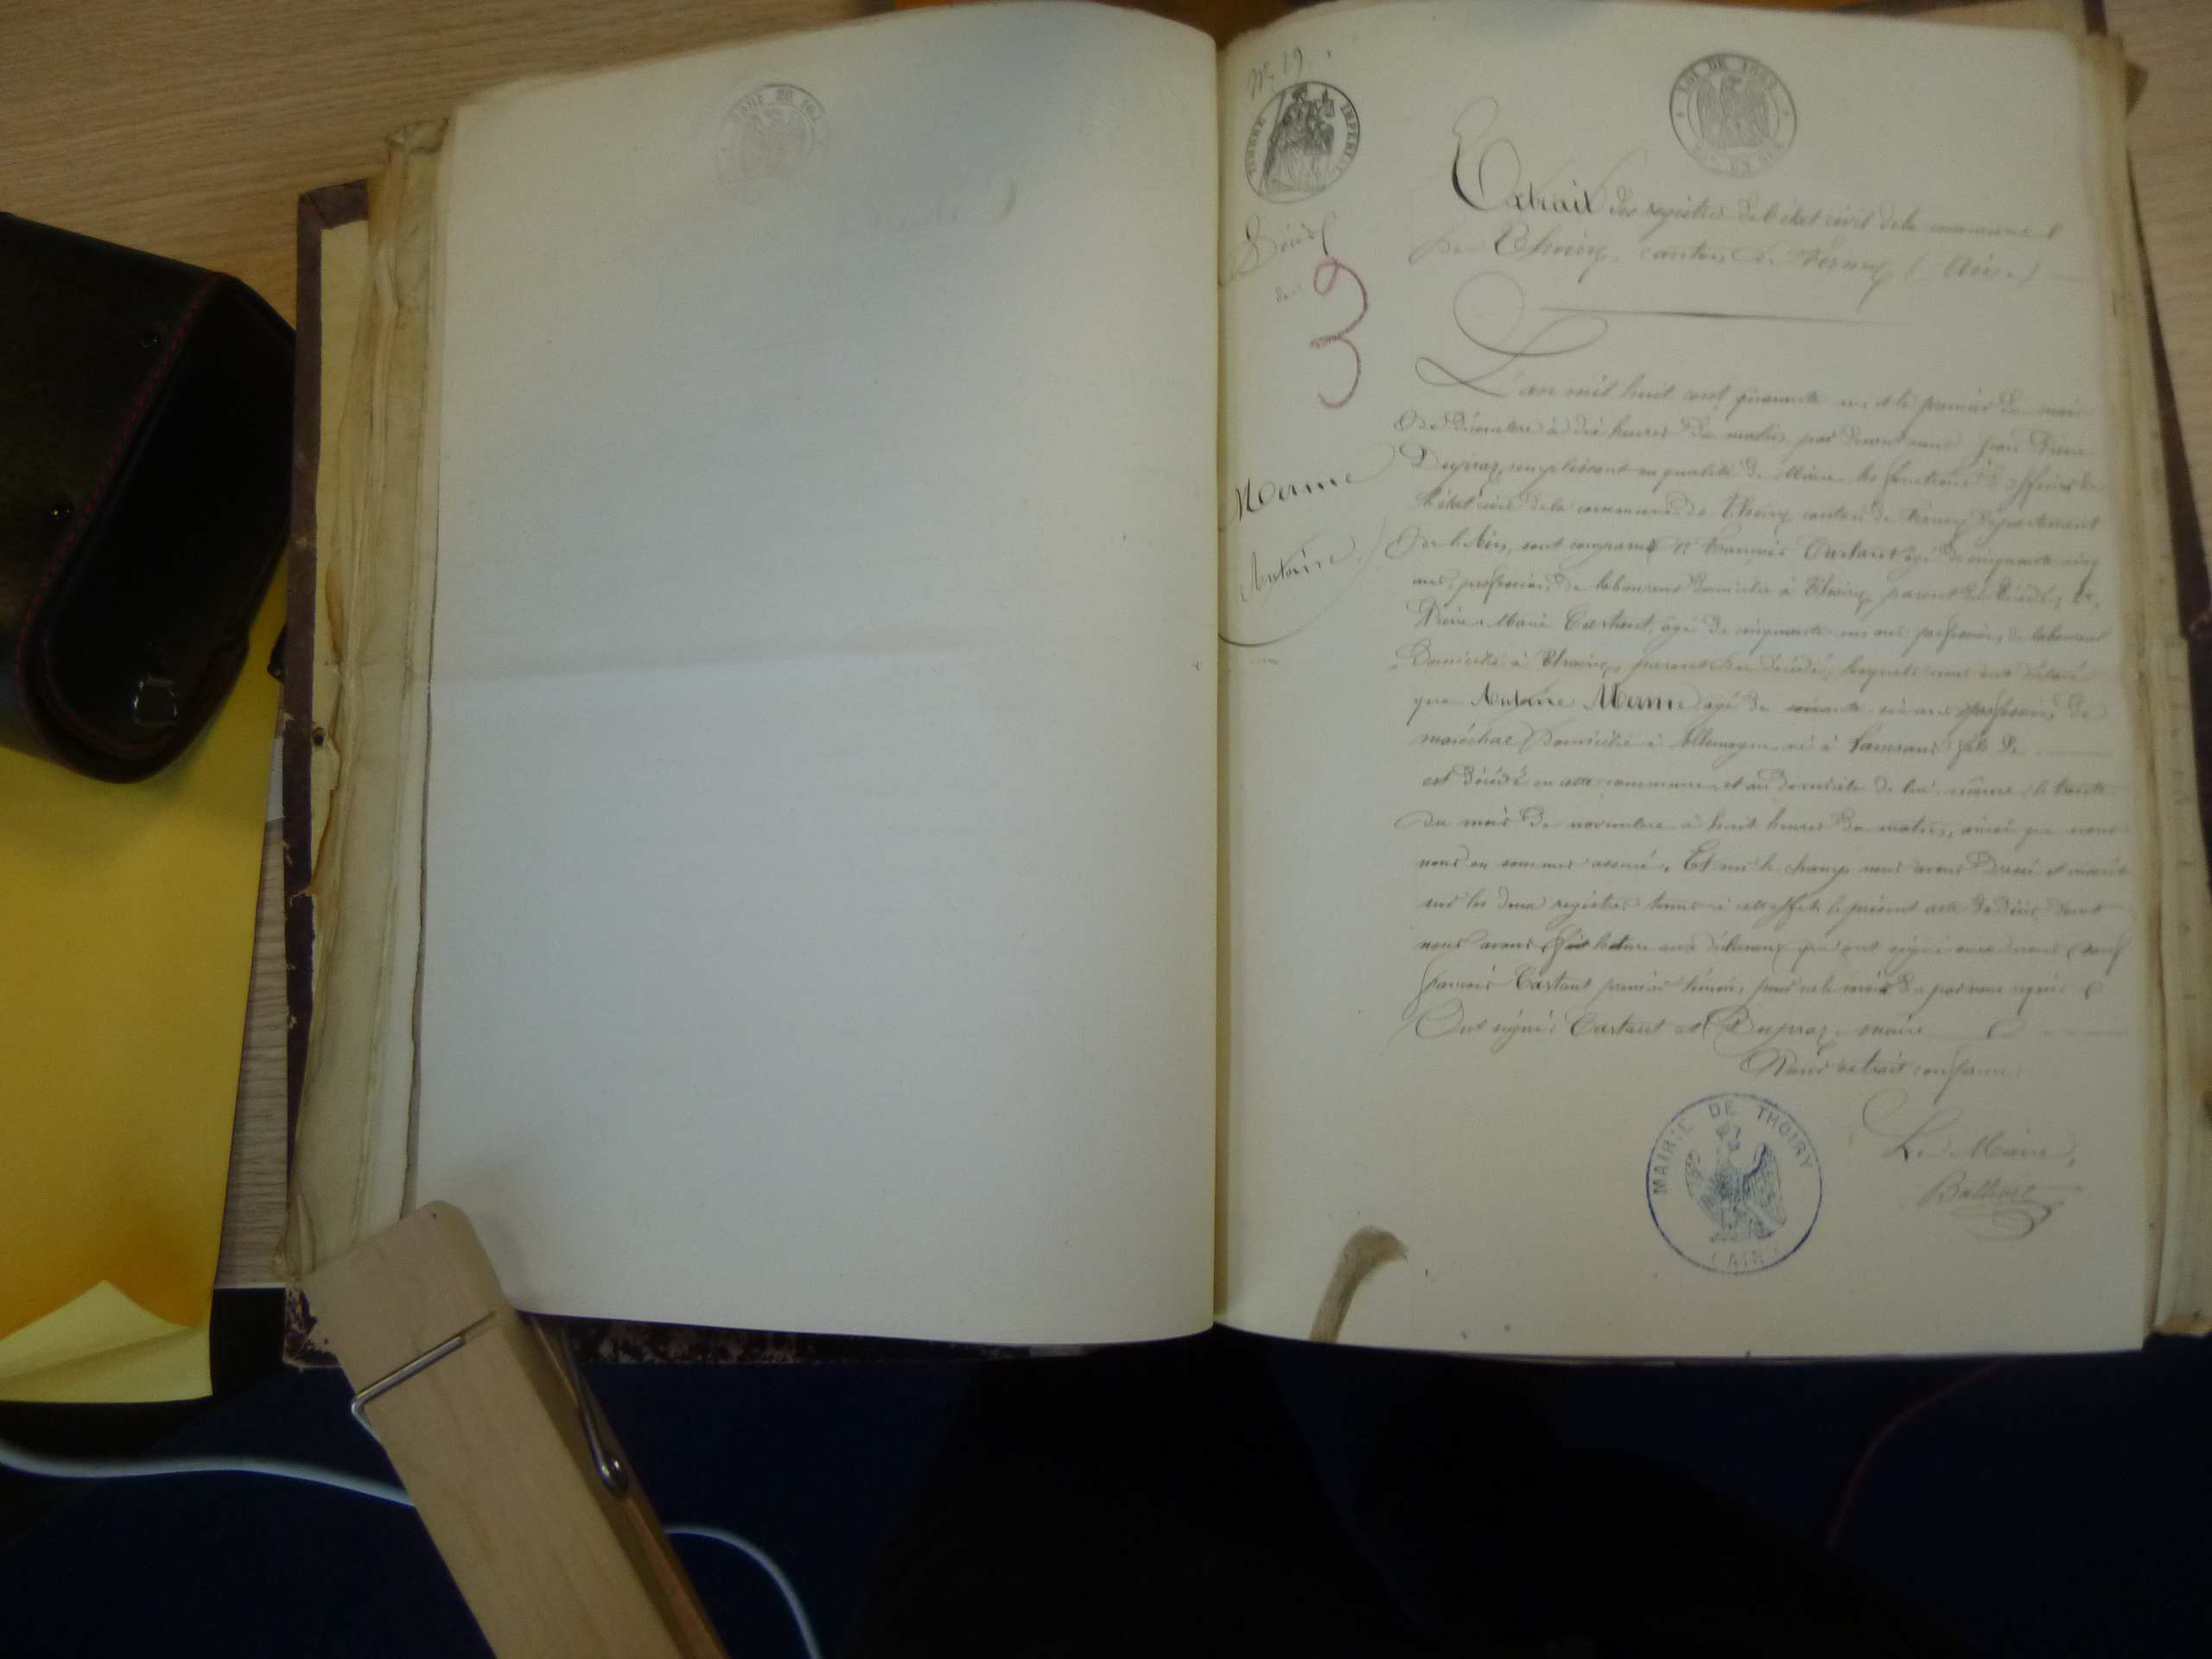 N° 19
TIMBRE IMPERIAL
LOI DE
Décès
de
3
Merme
Antoine
Extrait des registres de l'état civil de la commune
de Thoiry, canton de Ferney (Ain)
L'an mil huit cent quarante un et le premier du mois
de décembre à dix heures du matin, par devant nous Jean Pierre
Dupraz, remplissant en qualité de Maire les fonctions d'officier de
l'état civil de la commune de Thoiry canton de Ferney département
de l'Ain, sont comparus 1° François Tastant âgé de cinquante cinq
ans, profession de laboureur domicilié à Thoiry parent du décédé, 2°
Pierre Marie Tastant, âgé de cinquante un ans, profession de laboureur
domicilié à Thoiry, parent du décédé, lesquels nous ont déclaré
que Antoine Merme âgé de soixante ans profession de
maréchal domicilié à Allemogne né à fils de
est décédé en cette commune et au domicile de lui même le trente
du mois de novembre à huit heures du matin, ainsi que nous
nous en sommes assuré. Et sur le champ nous avons dressé et inscrit
sur les deux registres tenus à cet effet le présent acte de décès dont
nous avons fait lecture aux déclarants qui ont signé avec nous sauf
françois Tastant premier témoin pour ne le savoir de par nous requis
Ont signé: Tastant et Dupraz, maire
Pour extrait conforme:
Le Maire,
MAIRIE DE THOIRY
(AIN)